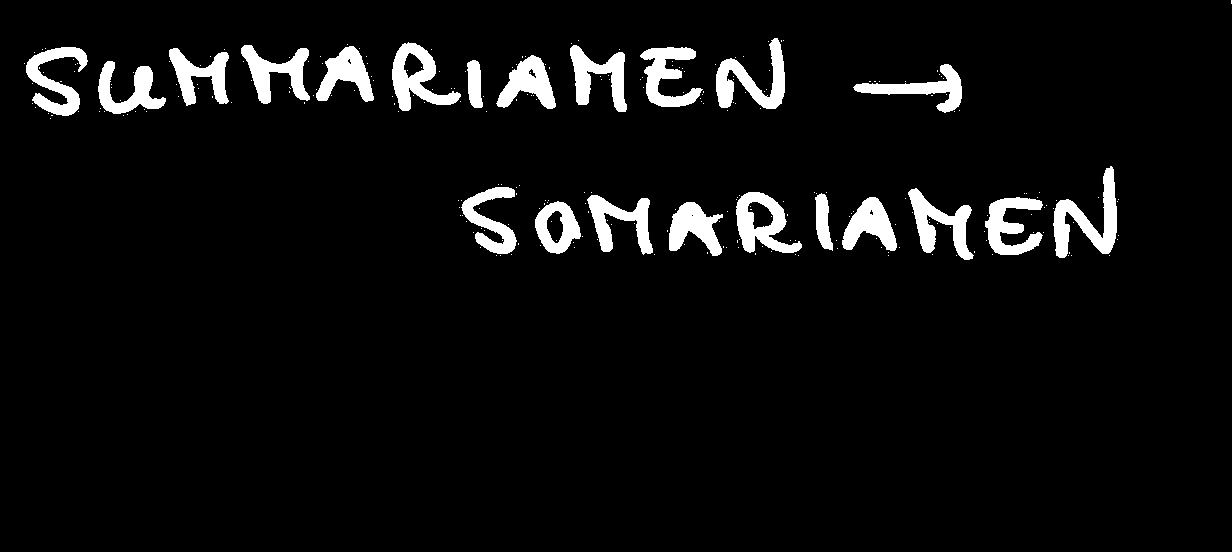 SUMMARIAMEN →
SOMARIAMEN